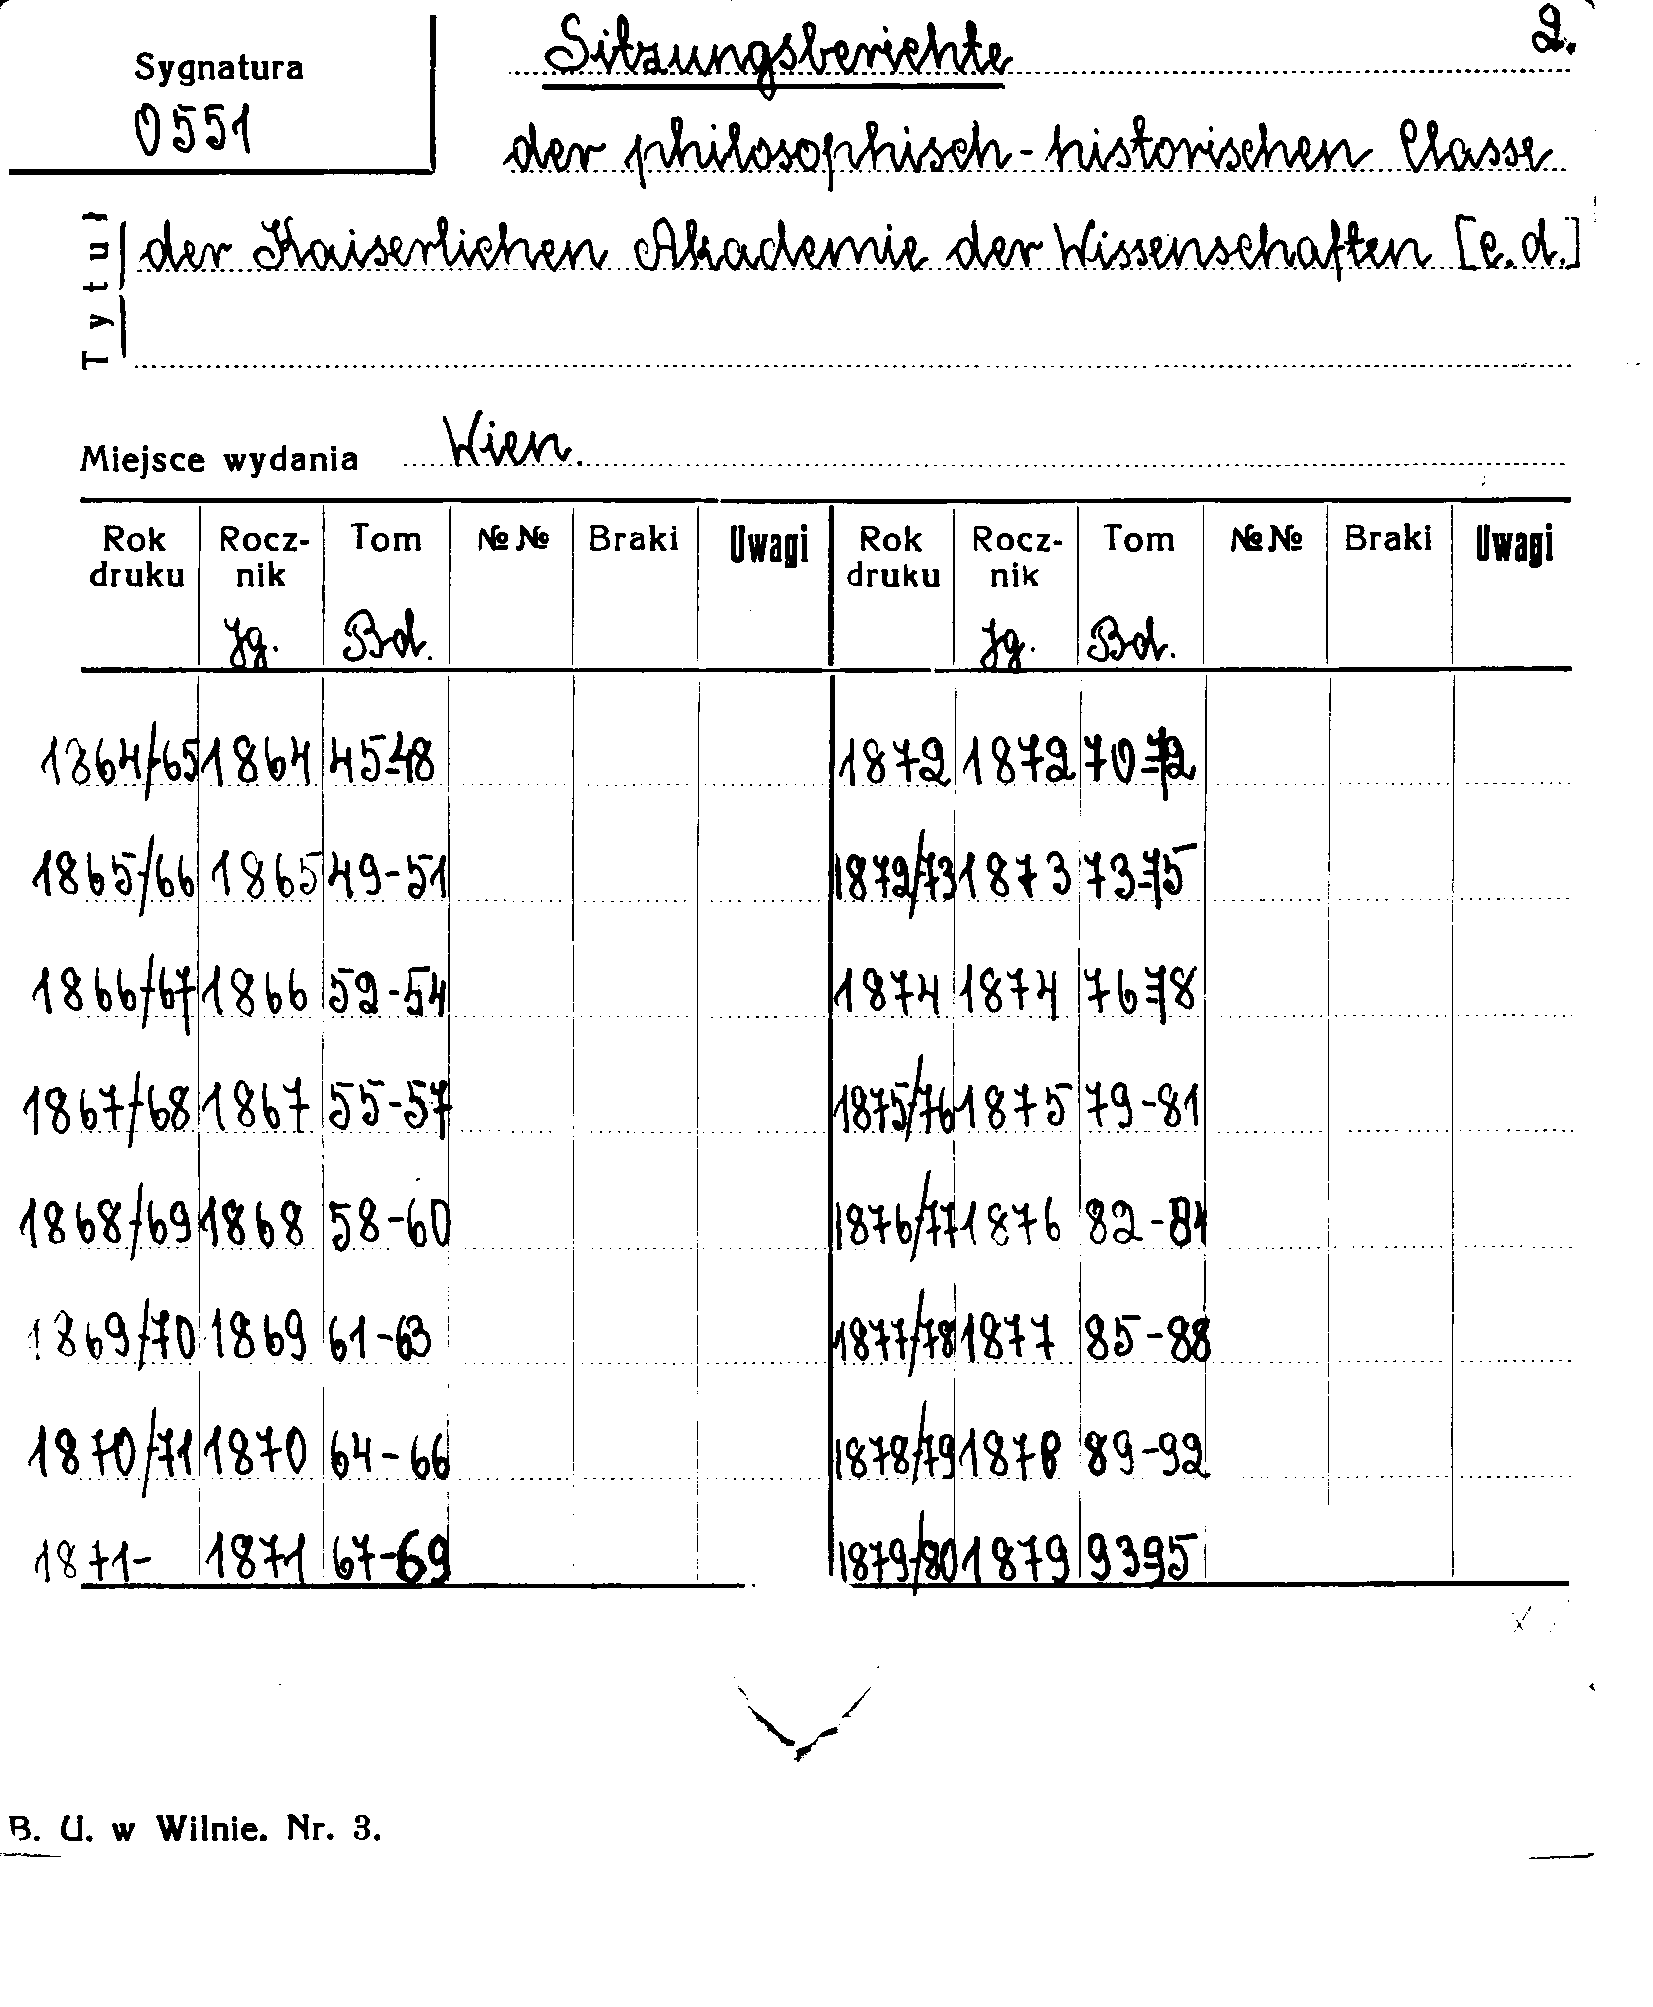 Sygnatura
0551
2.
Sitzungsberichte
der philosophisch-historischen Classe
Tytuł
der Kaiserlichen Akademie der Wissenschaften [c.d.]
Miejsce wydania Wien.
Rok druku Rocz-nik Jg. Tom Bd. №№ Braki Uwagi Rok druku Rocz-nik Jg. Tom Bd. №№ Braki Uwagi
1864/65 1864 45-48 1872 1872 70-72
1865/66 1865 49-51 1872/73 1873 73-75
1866/67 1866 52-54 1874 1874 76-78
1867/68 1867 55-57 1875/76 1875 79-81
1868/69 1868 58-60 1876/77 1876 82-84
1869/70 1869 61-63 1877/78 1877 85-88
1870/71 1870 64-66 1878/79 1878 89-92
1871- 1871 67-69 1879/80 1879 93-95
B. U. w Wilnie. Nr. 3.